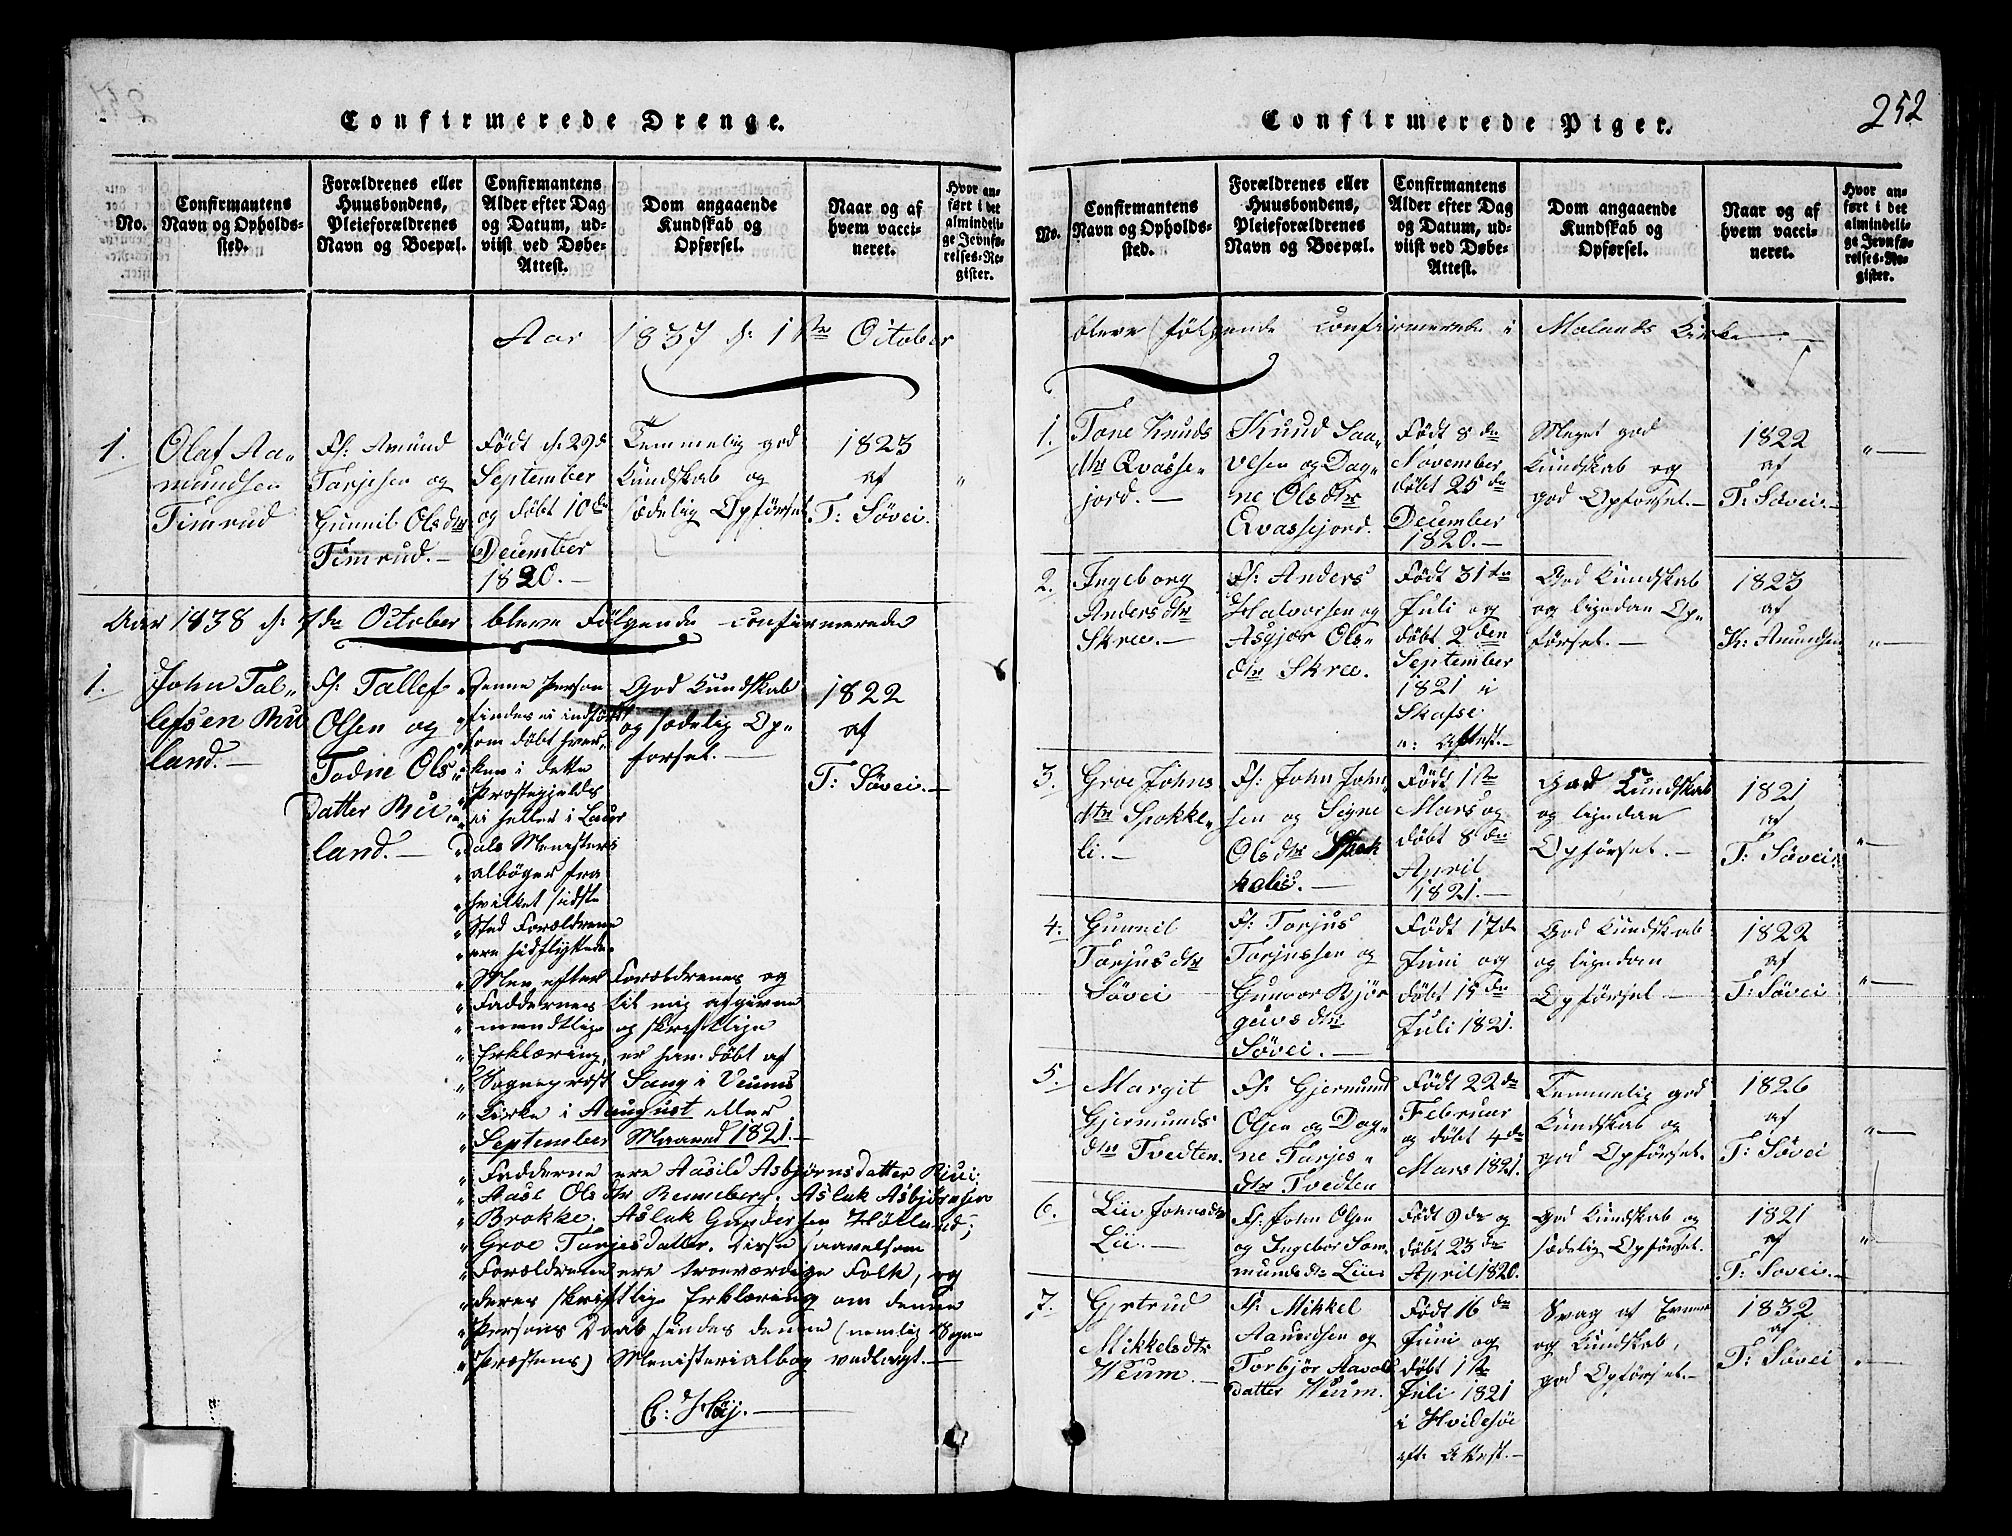 Confirmerede Drenge.
No.
Confirmantens
Navn og Opholds-
sted.
Forældrenes eller
Huusbondens,
Pleieforældrenes
Navn og Boepæl.
Confirmantens
Alder efter Dag
og Datum, ud-
viist ved Døbe-
Attest.
Dom angaaende
Kundskab og
Opførsel.
Naar og af
hvem vacci-
neret.
Hvor an-
ført i det
almindeli-
ge Jevnfø-
relses-Re-
gister.
Aar 1837 d: 1ste October
1.
Olaf Aa-
mundsen
Timrud
F: Amund
Tarjesen og
Gunnil Olsdtr
Timrud.-
Født d. 29d
September
og døbt 10de
December
1820.-
Temmelig god
Kundskab og
sædelig Opførsel
1823
af
T: Søvei.
"
Aar 1838 d: 7de October bleve Følgende confirmerede
1.
John Tal-
lefsen Ru
land.-
F: Tallef
Olsen og
Todne Ols
datter Ru
land.-
Denne Person
findes ei indført
som døbt hver-
ken i dette
Præstegjelds
ei heller i Laur
dals Ministeri
albøger fra
hvilket sidste
Sted Forældrene
ere hidflyttede
Men efter Forældrenes og
Faddernes til mig afgivne
mundtlige og skriftlige
Erklæring, er han døbt af
Sogneprest Lang i Veums
Kirke i August eller
September Maaned 1821.-
Fadderne ere Aasild Asbjørnsdatter Riui;
Aase Olsdtr Renneberg, Aslak Asbjørnsen
Brokke, Aslak Gundersen Høtland;
Groe Tarjesdatter. Disse saavelsom
Forældrene ere troværdige Folk, og
deres skriftlige Erklæring om denne
Persons Daab findes denne (nemlig Sogne
Præstens) Ministerialbog vedlagt.-
C: Høy.-
God Kundskab
og sædelig Op-
førsel.-
1822
af
T: Søvei.-
252
Confirmerede Piger.
No.
Confirmantens
Navn og Opholds-
sted.
Forældrenes eller
Huusbondens,
Pleieforældrenes
Navn og Boepæl.
Confirmantens
Alder efter Dag
og Datum, ud-
viist ved Døbe-
Attest.
Dom angaaende
Kundskab og
Opførsel.
Naar og af
hvem vacci-
neret.
Hvor an-
ført i det
almindeli-
ge Jevnfø-
relses-Re-
gister.
bleve følgende confirmerede i Molands Kirke.-
1.
Tone Knuds
dtr Qvasse-
jord.-
Knud Saa-
vesen og Dag-
ne Olsdtr
Qvassejord.
Født 8de
November
døbt 25de
December
1820.-
Meget god
Kundskab og
god Opførsel.-
1822
af
T: Søvei.-
"-
2.
Ingeborg
Andersdtr
Skree.-
F: Anders
Halvorsen og
Asgjær Ols-
dtr Skree.
Født 31te
Juli og
døbt 2den
September
1821 i
Skafse
e: Attest.-
God Kundskab
og ligedan Op-
førsel.-
1823
af
K: Amundsen
"-
3.
Groe Johns
dtr Spokke-
li.-
F: John John-
sen og Signe
Olsdtr Spok
kelie.-
Født 1ste
Mars og
døbt 8de
April
1821.-
God Kundskab
og ligedan
Opførsel.-
1821
af
T: Søvei.
"-
4.
Gunnil
Tarjusdtr
Søvei
F: Tarjus
Tarjussen og
Gunvor Bjør
gulvsdtr
Søvei.-
Født 17de
Juni og
døbt 15de
Juli 1821.
God Kundskab
og ligedan
Opførsel-
1822
af
T: Søvei
"-
5.
Margit
Gjermunds-
dtr Tvedten.
F: Gjermund
Olsen og Dag-
ne Tarjes-
dtr Tvedten
Født 22de
Februar
og døbt 4de
Mars 1821.
Temmelig god
Kundskab og
god Opførsel.
1826
af
T: Søvei
"-
6.
Liv Johnsdtr
Lii.-
F: John Olsen
og Ingebor Som
mundsdtr Lii
Født 9de og
døbt 23de
April 1820.
God Kundskab og
sædelig Opførsel.
1821
af
T: Søvei.-
"
7.
Gjertrud
Mikkelsdtr
Weum.-
F: Mikkel
Aanundsen og
Torbjør Aavolds
datter Weum.
Født 16de
Juni og
døbt 1ste
Juli 1821
i Hvidesøe
eft. Attest.-
Svag af Evner
og Kundskab,
god Opførsel.-
1832
af
T: Søvei
"-